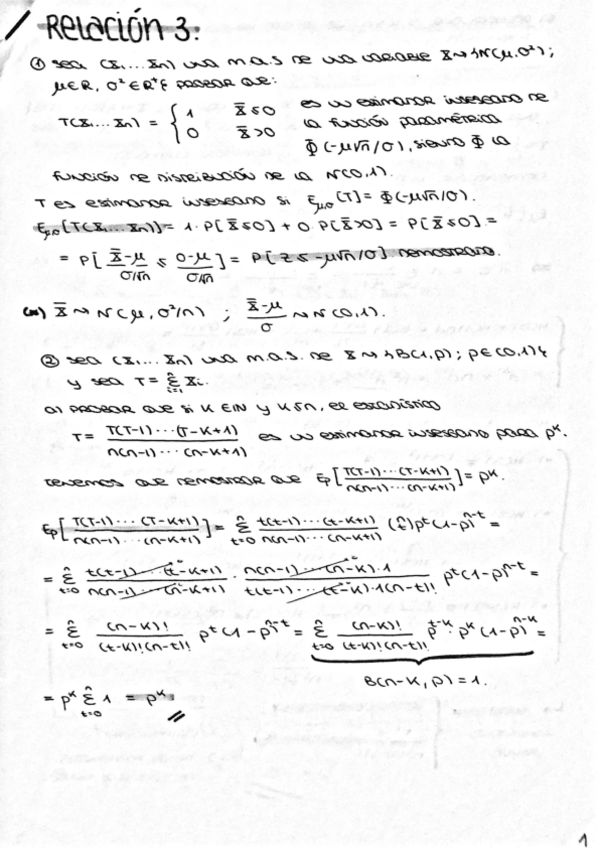 Relación 3:
① Sea (X₁...Xn) una m.a.s de una variable X→{N(μ,σ²);
μ∈R, σ²∈R⁺} probar que:
T(X₁...Xn) = { 1 X̄≤0
0 X̄>0
es un estimador insesgado de
la función paramétrica
Φ(-μ√n/σ), siendo Φ la
función de distribución de la N(0,1).
T es estimador insesgado si E_{μ,σ}[T] = Φ(-μ√n/σ).
E_{μ,σ}[T(X₁...Xn)] = 1·P[X̄≤0] + 0·P[X̄>0] = P[X̄≤0] =
= P[(X̄-μ)/(σ/√n) ≤ (0-μ)/(σ/√n)] = P[Z≤-μ√n/σ] demostrado.
(*) X̄→N(μ, σ²/n) ; (X̄-μ)/σ → N(0,1).
② Sea (X₁...Xn) una m.a.s. de X→{B(1,p); p∈(0,1)}
y sea T = Σⁿᵢ₌₁ Xᵢ.
a) Probar que si K∈ℕ y K≤n, el estadístico
T = T(T-1)···(T-K+1) / n(n-1)···(n-K+1) es un estimador insesgado para pᴷ.
Tenemos que demostrar que Ep[T(T-1)···(T-K+1) / n(n-1)···(n-K+1)] = pᴷ.
Ep[T(T-1)···(T-K+1) / n(n-1)···(n-K+1)] = Σⁿₜ₌₀ t(t-1)···(t-K+1) / n(n-1)···(n-K+1) (ⁿₜ) pᵗ(1-p)ⁿ⁻ᵗ =
= Σⁿₜ₌₀ t(t-1)···(t-K+1) / n(n-1)···(n-K+1) · n(n-1)···(n-K)·1 / t(t-1)···(t-K)·1(n-t)! pᵗ(1-p)ⁿ⁻ᵗ =
= Σⁿₜ₌₀ (n-K)! / (t-K)!(n-t)! pᵗ(1-p)ⁿ⁻ᵗ = Σⁿₜ₌₀ (n-K)! / (t-K)!(n-t)! pᵗ⁻ᴷ·pᴷ(1-p)ⁿ⁻ᴷ =
B(n-K, p) = 1.
= pᴷ Σⁿₜ₌₀ 1 = pᴷ
1